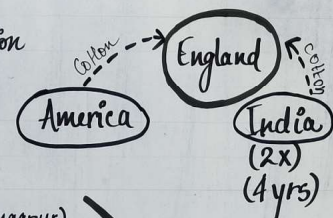 on
Cotton
England
Cotton
America
India
(2x)
(4 yrs)